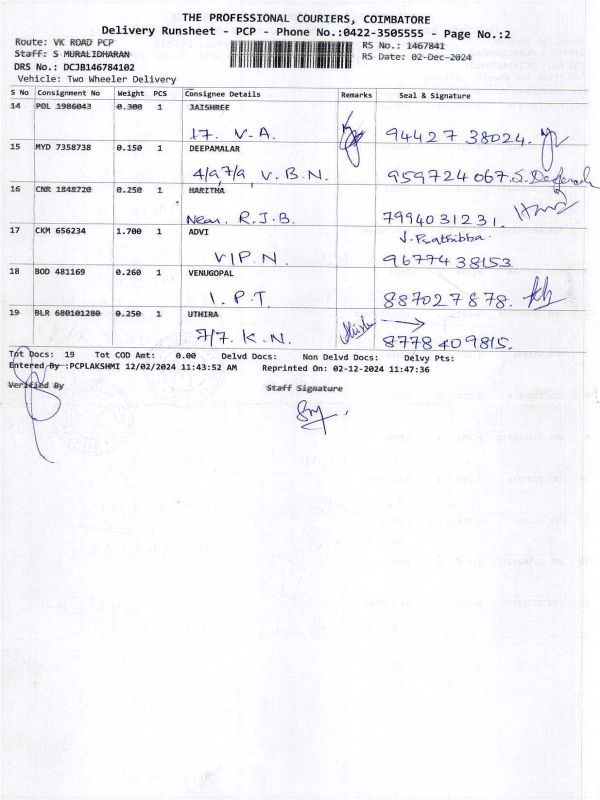 THE PROFESSIONAL COURIERS, COIMBATORE
Delivery Runsheet - PCP - Phone No.:0422-3505555 - Page No.:2
Route: VK ROAD PCP RS No.: 1467841
Staff: S MURALIDHARAN RS Date: 02-Dec-2024
DRS No.: DCJB146784102
Vehicle: Two Wheeler Delivery
S No Consignment No Weight PCS Consignee Details Remarks Seal & Signature
14 POL 1986043 0.300 1 JAISHREE
17. V.A. 94427 38024.
15 MYD 7358738 0.150 1 DEEPAMALAR
4/97/9, V.B.N. 959724067.
16 CNR 1848720 0.250 1 HARITHA
Near. R.J.B. 7994031231.
17 CKM 656234 1.700 1 ADVI
VIP.N. 9677438153
18 BOD 481169 0.260 1 VENUGOPAL
1. P.T. 887027878.
19 BLR 680101280 0.250 1 UTHIRA
7/7. K.N. 8778409815.
Tot Docs: 19 Tot COD Amt: 0.00 Delvd Docs: Non Delvd Docs: Delvy Pts:
Entered By :PCPLAKSHMI 12/02/2024 11:43:52 AM Reprinted On: 02-12-2024 11:47:36
Verified By Staff Signature